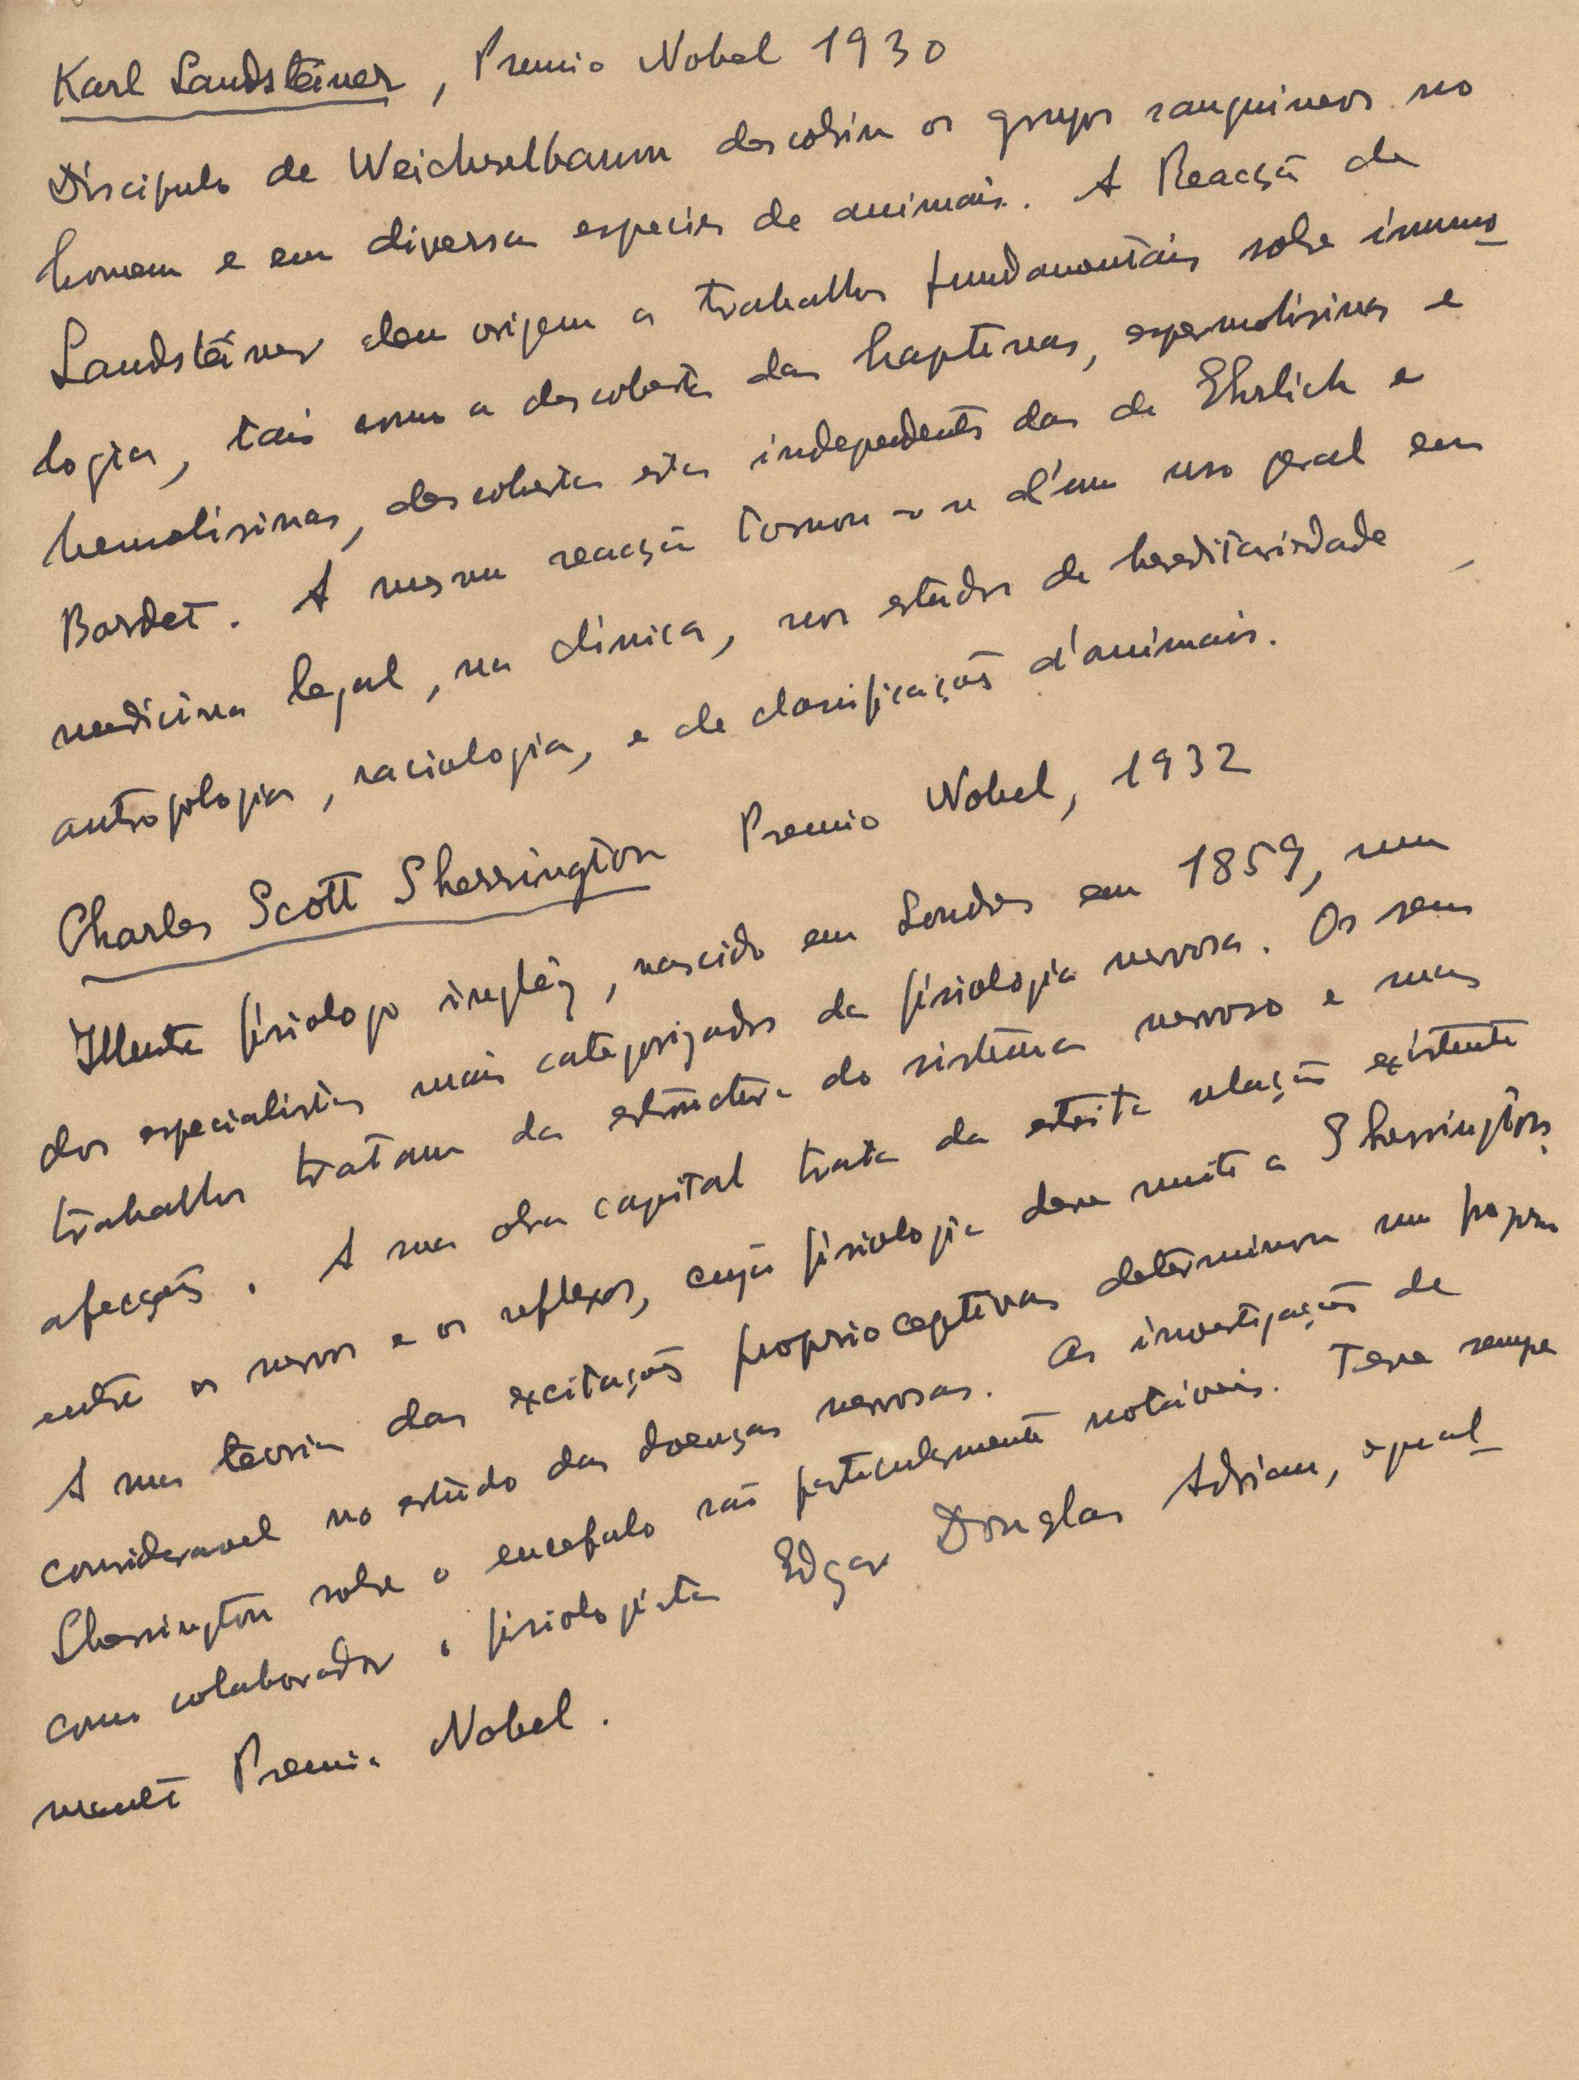 Karl Landsteiner, Premio Nobel 1930
Discipulo de Weichselbaum descobriu os grupos sanguineos no
homem e em diversas especies de animais. A Reacção de
Landsteiner deu origem a trabalhos fundamentais sobre immuno
logia, tais como a descoberta das haptenas, espermolisinas e
hemolisinas, descobertas estas independentes das de Ehrlich e
Bordet. A mesma reacção tornou-se d'um uso geral em
medicina legal, na clinica, nos estudos de hereditariedade,
antropologia, raciologia, e de classificações d'animais.
Charles Scott Sherrington Premio Nobel, 1932
Illustre fisiologo inglêz, nascido em Londres em 1859, um
dos especialistas mais categorizados da fisiologia nervosa. Os seus
trabalhos tratam da estructura do sistema nervoso e suas
afecções. A sua obra capital trata da estreita relação existente
entre os nervos e os reflexos, cuja fisiologia deve muito a Sherrington.
A sua teoria das excitações proprioceptivas determinou um progresso
consideravel no estudo das doenças nervosas. As investigações de
Sherrington sobre o encefalo são particularmente notáveis. Teve sempre
como colaborador o fisiologista Edgar Douglas Adrian, egual
mente Premio Nobel.